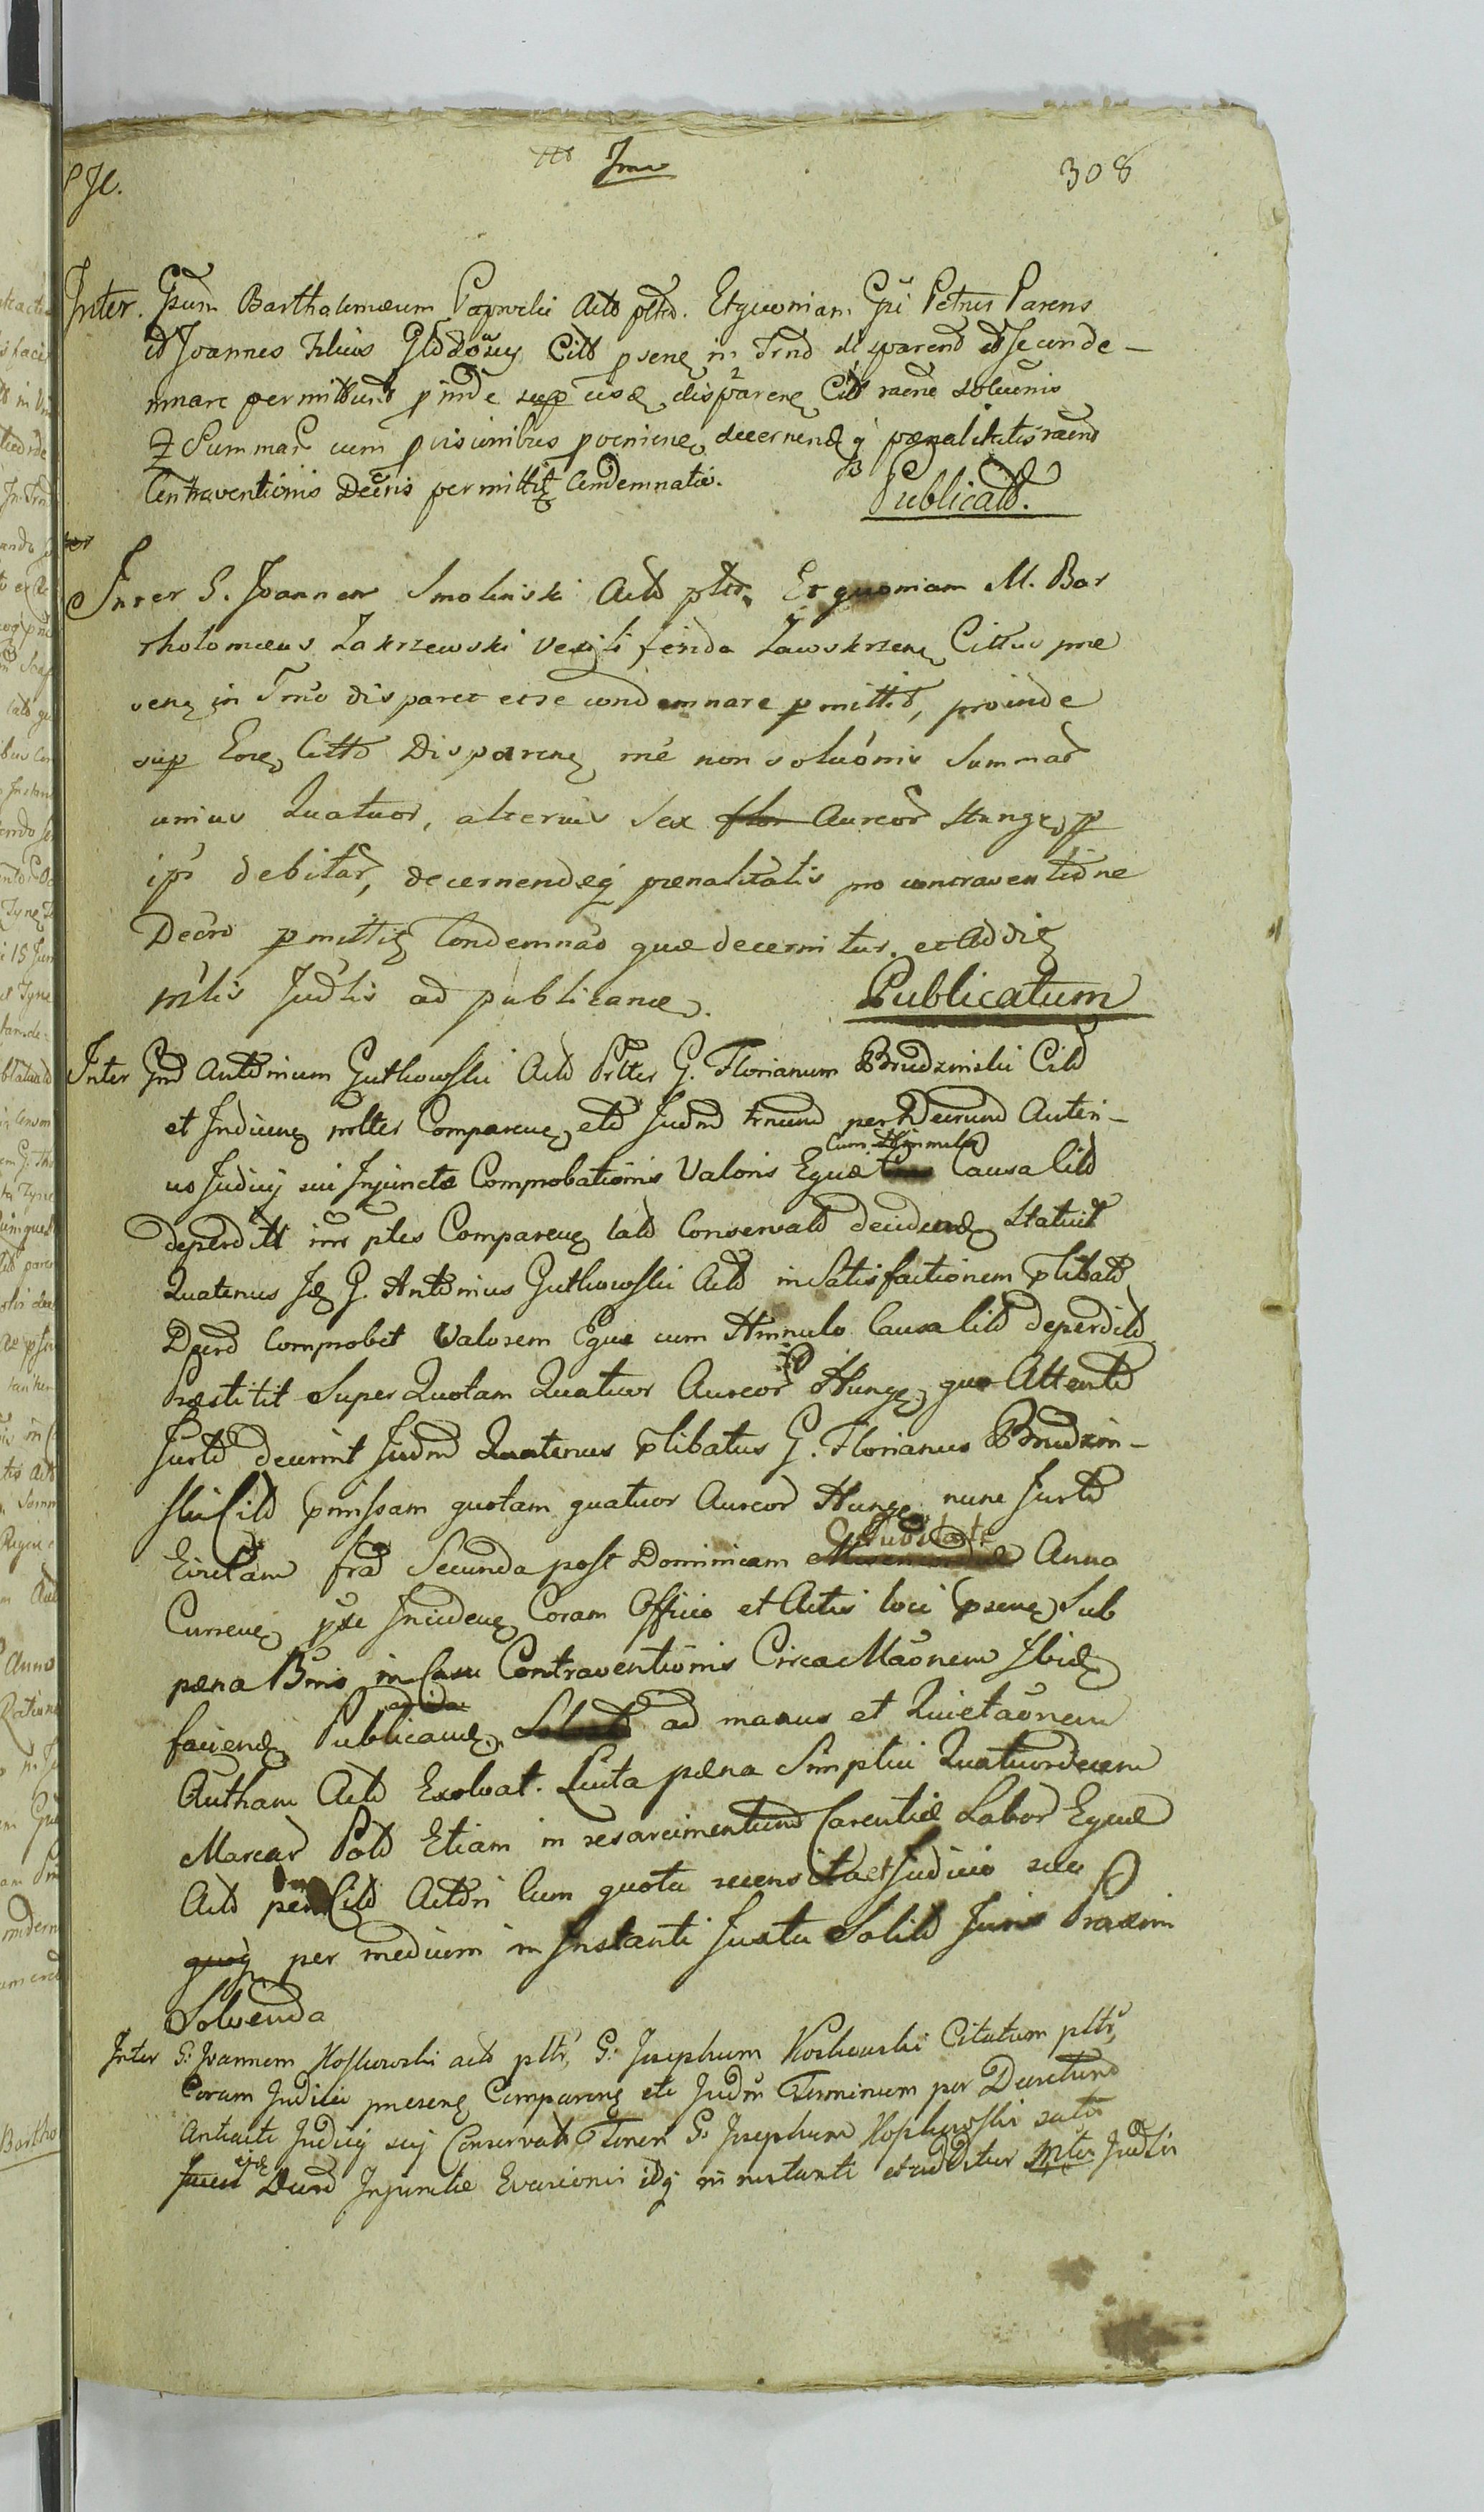 308
Inter. Gsum Bartholomeum Paprocki Actō pltr. Et quoniam Gri Petrus Parens
et Joannes Filius Citt psens in Trno disparent et se conde-
mnare permittunt pinde sup eisd disparens Citt raene soluonis
Summar cum puisionibus pveniens decernend q pœnalitatis raene
Contraventionis Decris permittit Condemnatio.
Publicatt.
Inter G. Joannem Smolinski Actō pltr. Et quoniam M. Bar
tholomæus Zakrzewski Vexilliferida Zawskrzens Cittus præ
sens in Trno disparet et se condemnare pmittit, proinde
sup Eoq Citto Disparens rne non soluonis Summar
unius Quatuor, alterius Sex flor Aureor Hung p
ipi debitar, decernendæq pœnalitatis pro contraventione
Decri pmittit Condemnao quæ decernitur et Addit
mlis Judlis ad publicand. Publicatum
Inter Gnd Antonium Gutkowski Actō Prltr G. Florianum Brudzinski Citō
et Indicens prlter Comparens etc Judm trnum per Decrum Anteri-
us Judicij sui Injunctæ Comprobationis Valoris Equæ Cum Hinnulo Causa Citō
deperditt inr ptes Comparens latō Conservatō decidend Statuit
Quatenus Id G. Antonius Gutkowski Actō in Satisfactionem plibatō
Decrō Comprobet Valorem Equæ cum Hinnulo Causa Citō deperditō
Præstitit Super Quotam Quatuor Aureor Hung quo Attento
Juxtō decernit Judm Quatenus plibatus G. Florianus Brudzin-
ski Citō pmissam quotam quatuor Aureor Hung nunc Juxtō
Evictam fria Secunda post Dominicam Anno
Currens pse Incidens Coram Officio et Actis loci psens Sub
pœna Bnis in Casu Contraventionis Circa Maonem Ibid
faciend Publicand ad manus et Quietaonem
Autham Actō Exolvat. Luita pœna Simplici Quatuordecem
Marcar Polō Etiam in resarcimentum Carentiæ Labor Equæ
Actō per Citō Actori Cum quota recensita et Judicio suo
quoq per medium in Instanti Juxta Solitō Juris Praxim
Solvenda
Inter G: Joannem Koskowski actō pltr, G: Josephum Koskowski Citatum pltr,
Coram Judicio præsens Comparens etc Judm Terminum per Decretum
Anteacti Judicij sui Conservatō Tenen G: Josephum Koskowski satis
Decrō Injunctæ Evasionis idq in instanti et additur Mtis Judlis